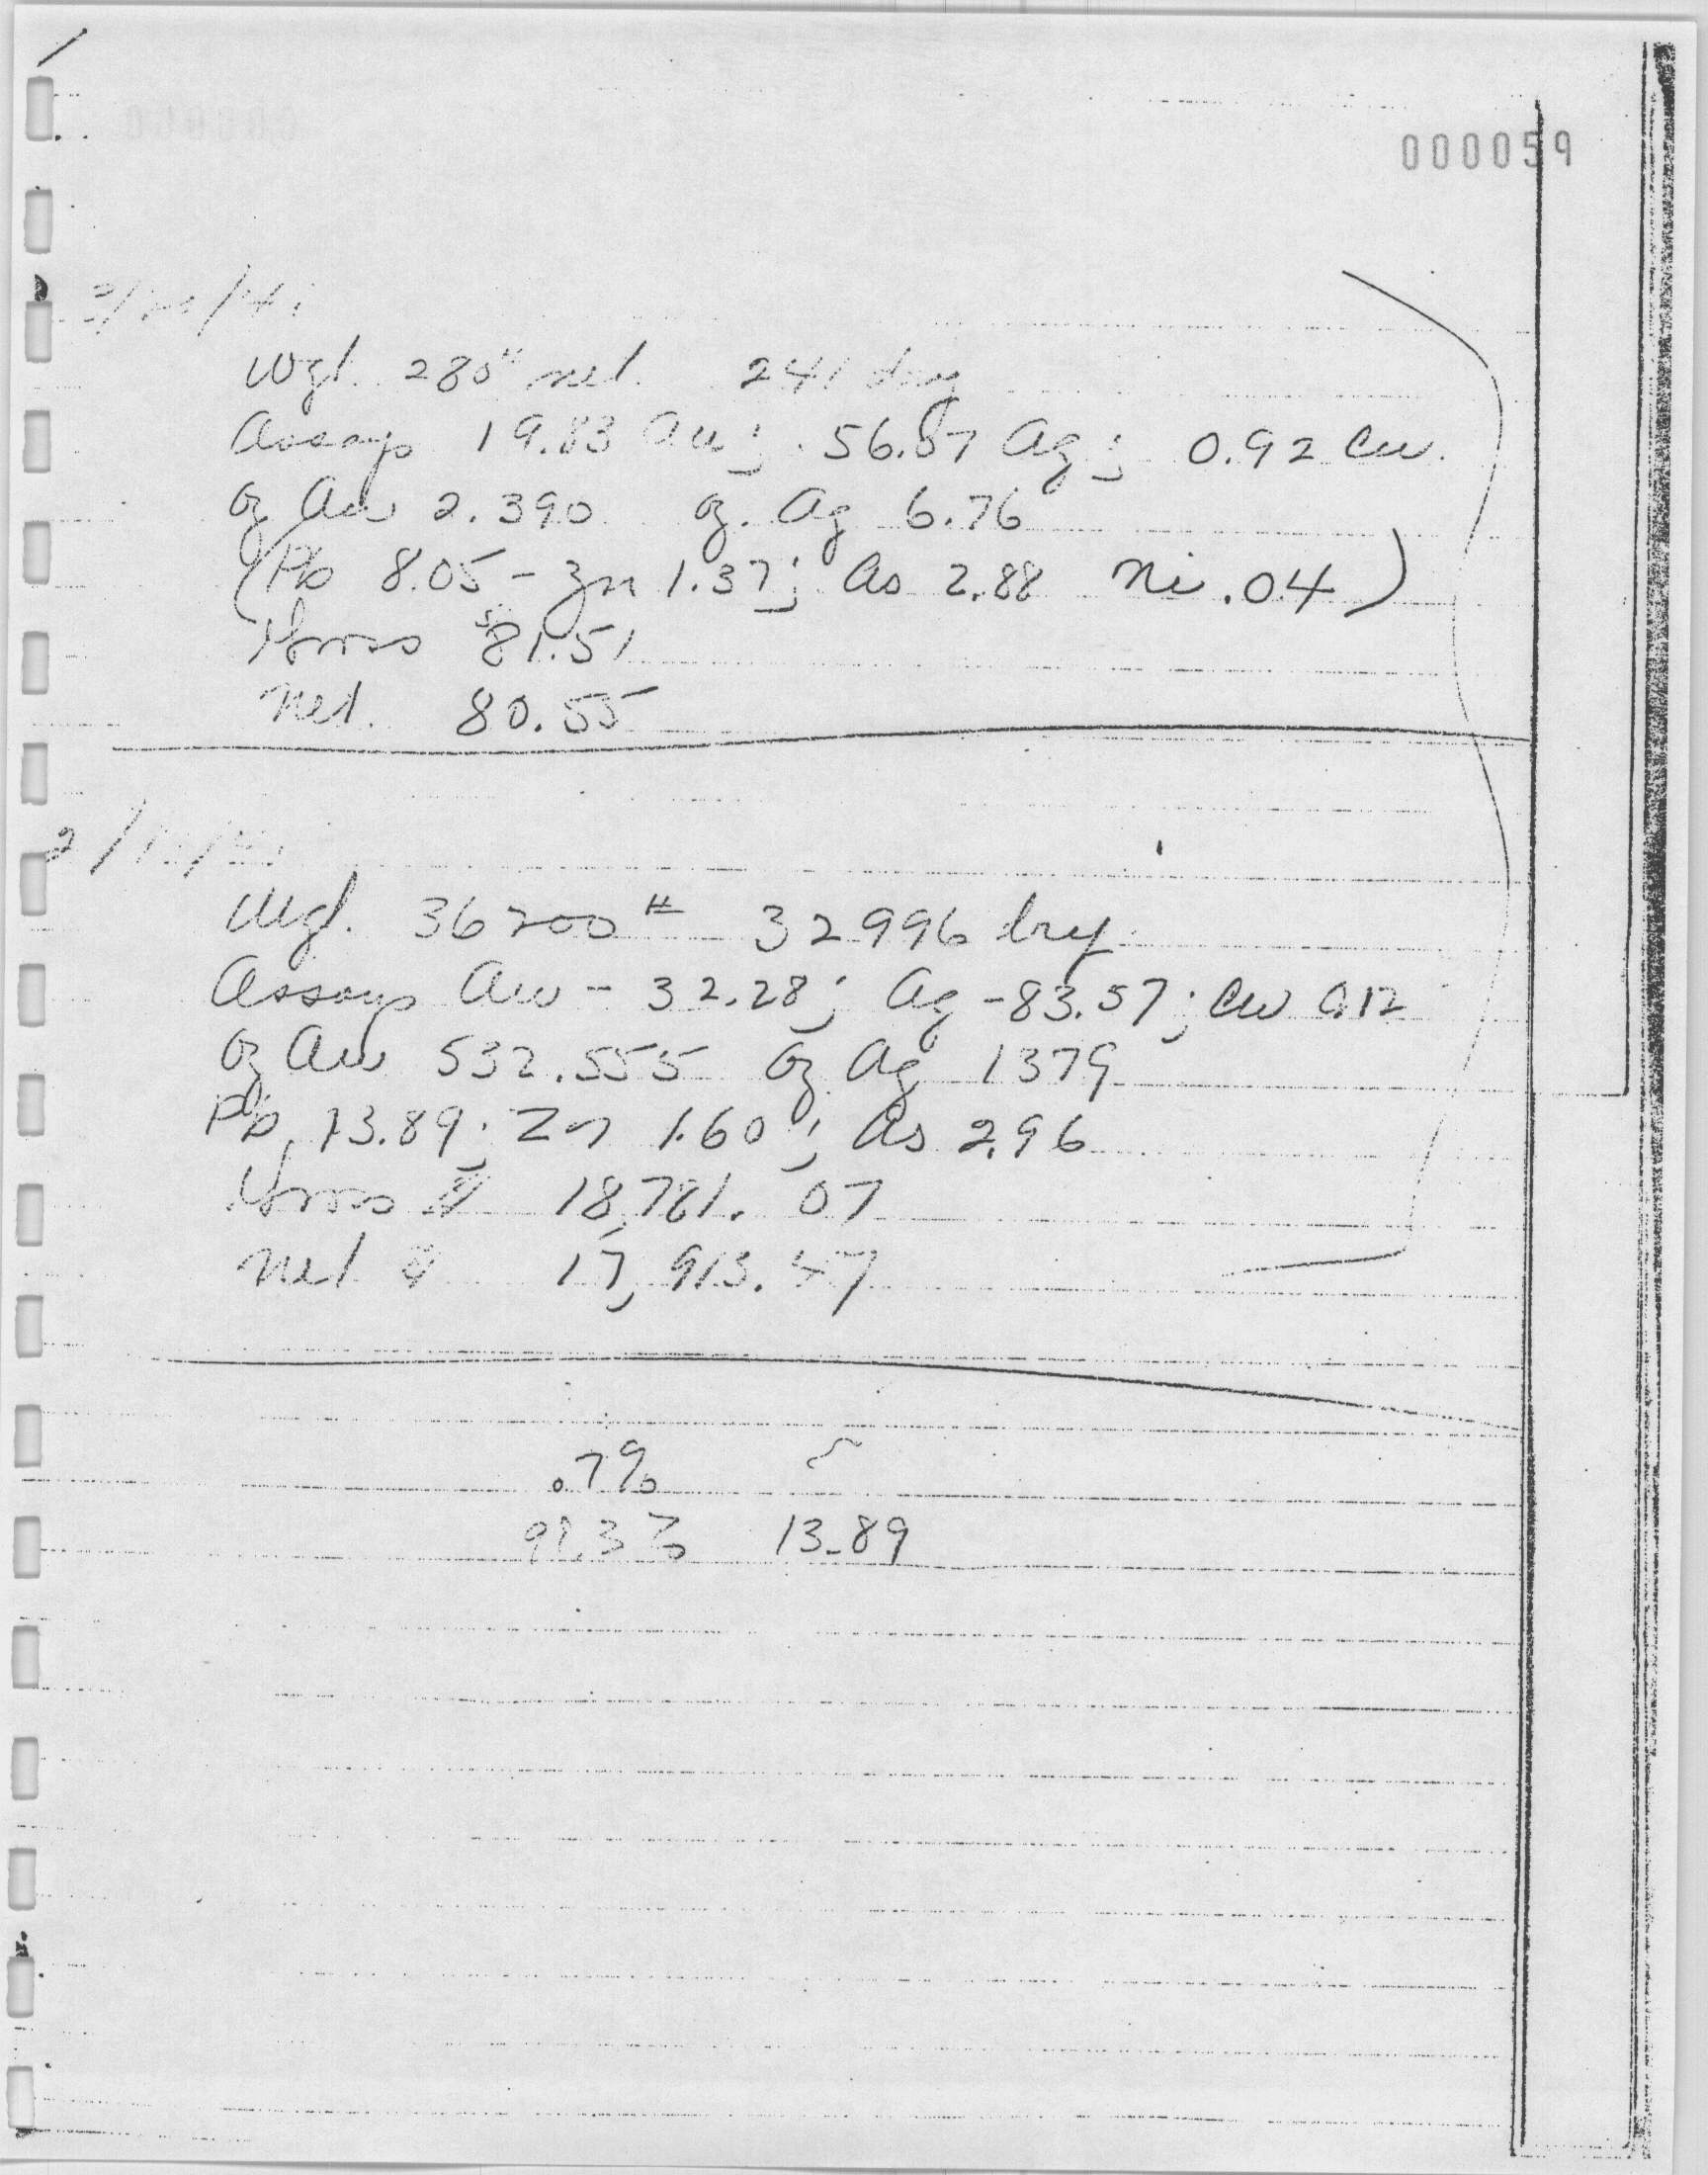 000059
Wgt. 280# net. 241 dry
Assays 19.83 Au; 56.07 Ag; 0.92 Cu.
oz Au 2.390 oz. Ag 6.76
(Pb 8.05 - Zn 1.37; As 2.88 Ni .04)
Gross $81.51
Net. 80.55
2/
Wgt. 36200# 32996 dry
Assays Au - 32.28; Ag - 83.57; Cu 0.12
oz Au 532.555 oz Ag 1379
Pb, 13.89; Zn 1.60; As 2.96
Gross $ 18,781.07
Net $ 17,913.47
.7%
98.3% 13.89